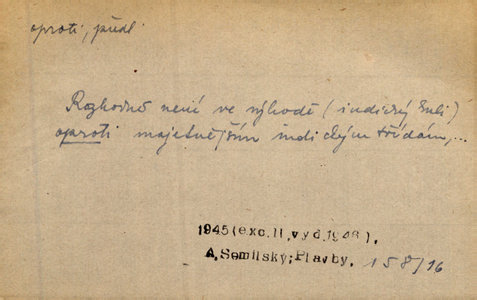 oproti, předl.
Rozhodně není ve výhodě (indický kuli)
oproti majetnějším indickým třídám,...
1945(exc.II,vyd.1946),
A.Semilský;Plavby. 158/16